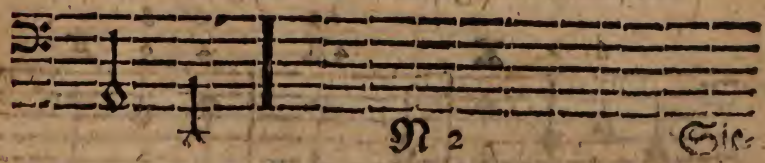 N 2 Sie-